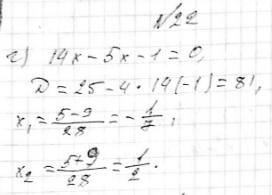 №22
г) 14x - 5x - 1 = 0,
D = 25 - 4 · 14(-1) = 81,
x₁ = (5-9)/28 = -1/7,
x₂ = (5+9)/28 = 1/2.